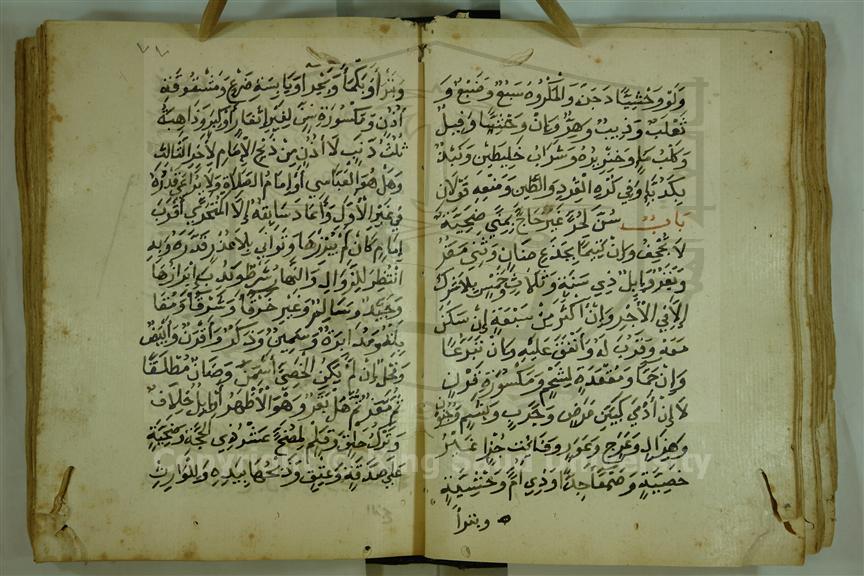 ولو وحشيا دجن والمكروه سبع وضبع و
ثعلب وذيب وهر وان وحشيا وفيل
وكلب ماء وخنزيره وشراب خليطين ونبذ
بكدباء وفي كره القرد والطين ومنعه قولان
باب سن لحر غير حاج بمنى ضحية
لا تجحف وان يتيما بجذع ضان وثني معز
وبقر وابل ذي سنة وثلاث وخمس بلا شرك
الا في الاجر وان اكثر من سبعة ان سكن
معه وقرب له وانفق عليه وان تبرعا
وان جما ومقعدة لشحم ومكسورة قرن
لا ان ادمى كبين مرض وجرب وبشم وجنون
وهزال وعرج وعور وفائت جزء غير
خصية وصمعا جدا وذي ام وحشية
وبترا
وبترا وبكما وبخرا ويابسة ضرع ومشقوقة
اذن ومكسورة سن لغير اثغار او كبر وذاهبة
ثلث ذنب لا اذن من ذبح الامام لاخر الثالث
وهل هو العباسي او امام الصلاة ولا يراعى قدره
في غير الاول واعاد سابقه الا المتحري اقرب
امام كان لم يبرزها وتوانى بلا عذر قدره وبه
انتظر للزوال والنهار شرط وندب ابرازها
وجيد وسالم وغير خرقا وشرقا ومقا
بلة ومدابرة وسمين وذكر واقرن وابيض
وفحل ان لم يكن الخصي اسمن وضان مطلقا
ثم معز ثم هل بقر وهو الاظهر او ابل خلاف
وترك حلق وقلم لمضح عشر ذي الحجة وضحية
على صدقة وعتق وذبحها بيده وللوارث